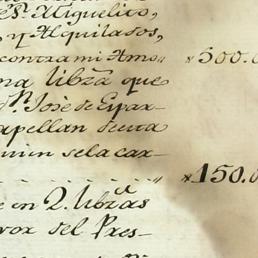 Sr. Miguelito,
y Alquilados,
contra mi Amo
500.0
na libra que
Dn. Jose de Epar-
apellan de esta
quien se la car-
150.0
e en 2. libras
vor del Pres-